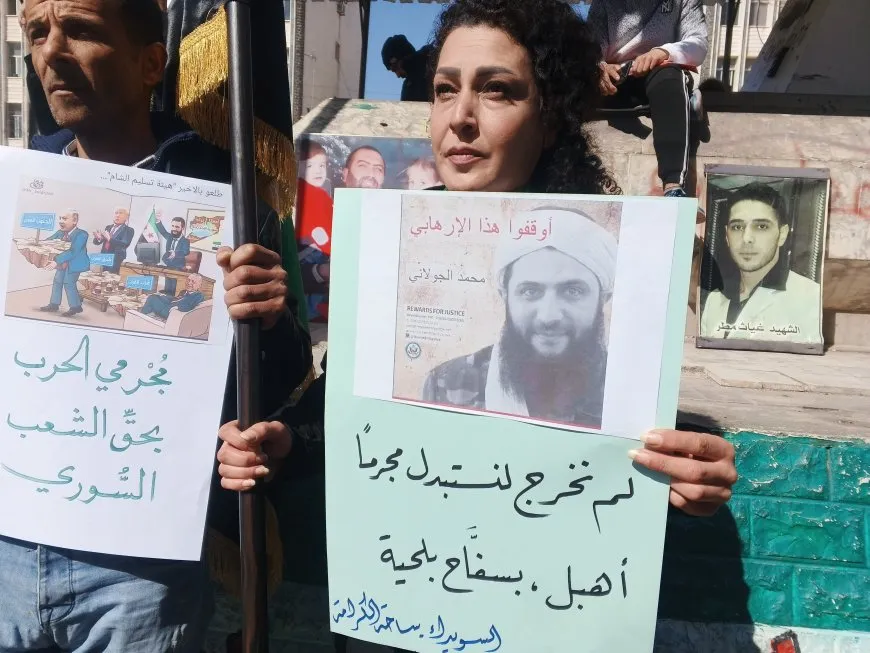 طلعو بالاخير "هيئة تسليم الشام"...
مُجْرمي الحرب
بحقِّ الشعب
السُّوري
أوقفوا هذا الإرهابي
محمد الجولاني
REWARDS FOR JUSTICE
لم نخرج لنستبدل مجرمًا
أهبل، بسفَّاح بلحية
السويداء ساحة الكرامة
الشهيد غياث مطر